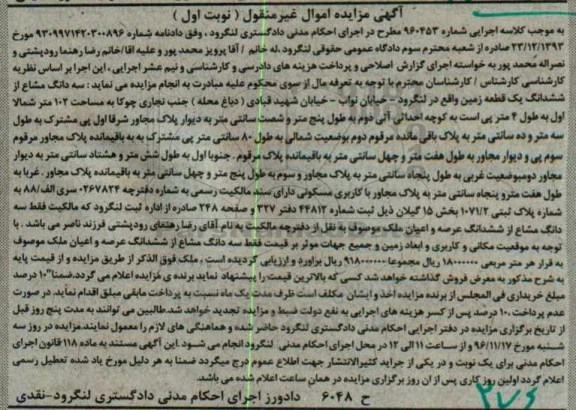 آگهی مزایده اموال غیرمنقول ( نوبت اول )
به موجب کلاسه اجرایی شماره ۹۶۰۴۵۳ مطرح در اجرای احکام مدنی دادگستری لنگرود ، وفق دادنامه شماره ۹۳۰۹۹۷۱۴۲۰۳۰۰۸۹۶ مورخ
۲۳/۱۲/۱۳۹۳ صادره از شعبه محترم سوم دادگاه عمومی حقوقی لنگرود ،له خانم / آقا پرویز محمد پور و علیه اقا/خانم رضا رهنما رودپشتی و
نصراله محمد پور به خواسته اجرای گزارش اصلاحی و پرداخت هزینه های دادرسی و کارشناسی و نیم عشر اجرایی ، این اجرا بر اساس نظریه
کارشناسی کارشناس / کارشناسان محترم با توجه به تعرفه مال از سوی محکوم علیه مبادرت به انجام مزایده می نماید : سه دانگ مشاع از
ششدانگ یک قطعه زمین واقع در لنگرود - خیابان نواب - خیابان شهید قبادی ( دباغ محله ) جنب نجاری چوکا به مساحت ۱۰۲ متر شمالا
اول به طول ۴ متر پی است به کوچه احداثی آتی دوم به طول پنج متر و شصت سانتی متر به دیوار پلاک مجاور شرقا اول پی مشترک به طول
سه متر و ده سانتی متر به پلاک باقی مانده مرقوم دوم بوضعیت شمالی به طول ۸۰ سانتی متر پی مشترک به به باقیمانده پلاک مجاور مرقوم
سوم پی و دیوار مجاور به طول هفت متر و چهل سانتی متر به باقیمانده پلاک مرقوم . جنوبا اول به طول شش متر و هشتاد سانتی متر به دیوار
مجاور دوم بوضعیت غربی به طول پنجاه سانتی متر به پلاک مجاور و سوم به طول پنج متر و چهل سانتی متر به باقیمانده پلاک مجاور . غربا به
طول هفت متر و پنجاه سانتی متر به پلاک مجاور با کاربری مسکونی دارای سند مالکیت رسمی به شماره دفترچه ۰۲۶۷۸۲۴ سری الف/۸۸ به
شماره پلاک ثبتی ۱۰۷۱/۲ بخش ۱۵ گیلان ذیل ثبت شماره ۴۴۸۱۲ دفتر ۳۲۷ و صفحه ۲۴۸ صادره از اداره ثبت لنگرود که مالکیت فقط سه
دانگ مشاع از ششدانگ عرصه و اعیان ملک موصوف به نقل از دفترچه مالکیت به نام آقای رضا رهنمای رودپشتی فرزند ناصر می باشد . با
توجه به موقعیت مکانی و کاربری و ابعاد زمین و جمیع جهات موثر بر قیمت فقط سه دانگ مشاع از ششدانگ عرصه و اعیان ملک موصوف
به قرار هر متر مربعی ۱۸۰۰۰۰۰۰ ریال مجموعا ۹۱۸۰۰۰۰۰۰ ریال براورد و ارزیابی گردیده است . ملک فوق الذکر از طریق مزایده و از قیمت پایه
به شرح مذکور به معرض فروش گذاشته خواهد شد کسی که بالاترین قیمت را پیشنهاد نماید برنده ی مزایده اعلام می گردد.ضمنا"۱۰ درصد
مبلغ خریداری فی المجلس از برنده مزایده اخذ و ایشان مکلف است ظرف مدت یک ماه نسبت به پرداخت مابقی مبلغ اقدام نماید. در صورت
عدم پرداخت ،۱۰ درصد پس از کسر هزینه های اجرایی به نفع دولت ضبط و مزایده تجدید خواهد شد.طالبین می توانند به مدت پنج روز قبل
از تاریخ برگزاری مزایده در دفتر اجرایی احکام مدنی دادگستری لنگرود حاضر شده و هماهنگی های لازم را معمول نمایند مزایده در روز سه
شنبه مورخ ۹۶/۱۱/۱۷ و از ساعت ۱۱ الی ۱۲ در محل اجرای احکام مدنی لنگرود انجام می شود .این آگهی مستند به ماده ۱۱۸ قانون اجرای
احکام مدنی برای یک نوبت و در یکی از جراید کثیرالانتشار جهت اطلاع عموم درج میگردد ضمنا به هر دلیل مورخ یاد شده تعطیل رسمی
اعلام گردد اولین روز کاری پس از ان روز برگزاری مزایده در همان ساعت اعلام شده می باشد.
ح ۶۰۴۸ دادورز اجرای احکام مدنی دادگستری لنگرود-نقدی